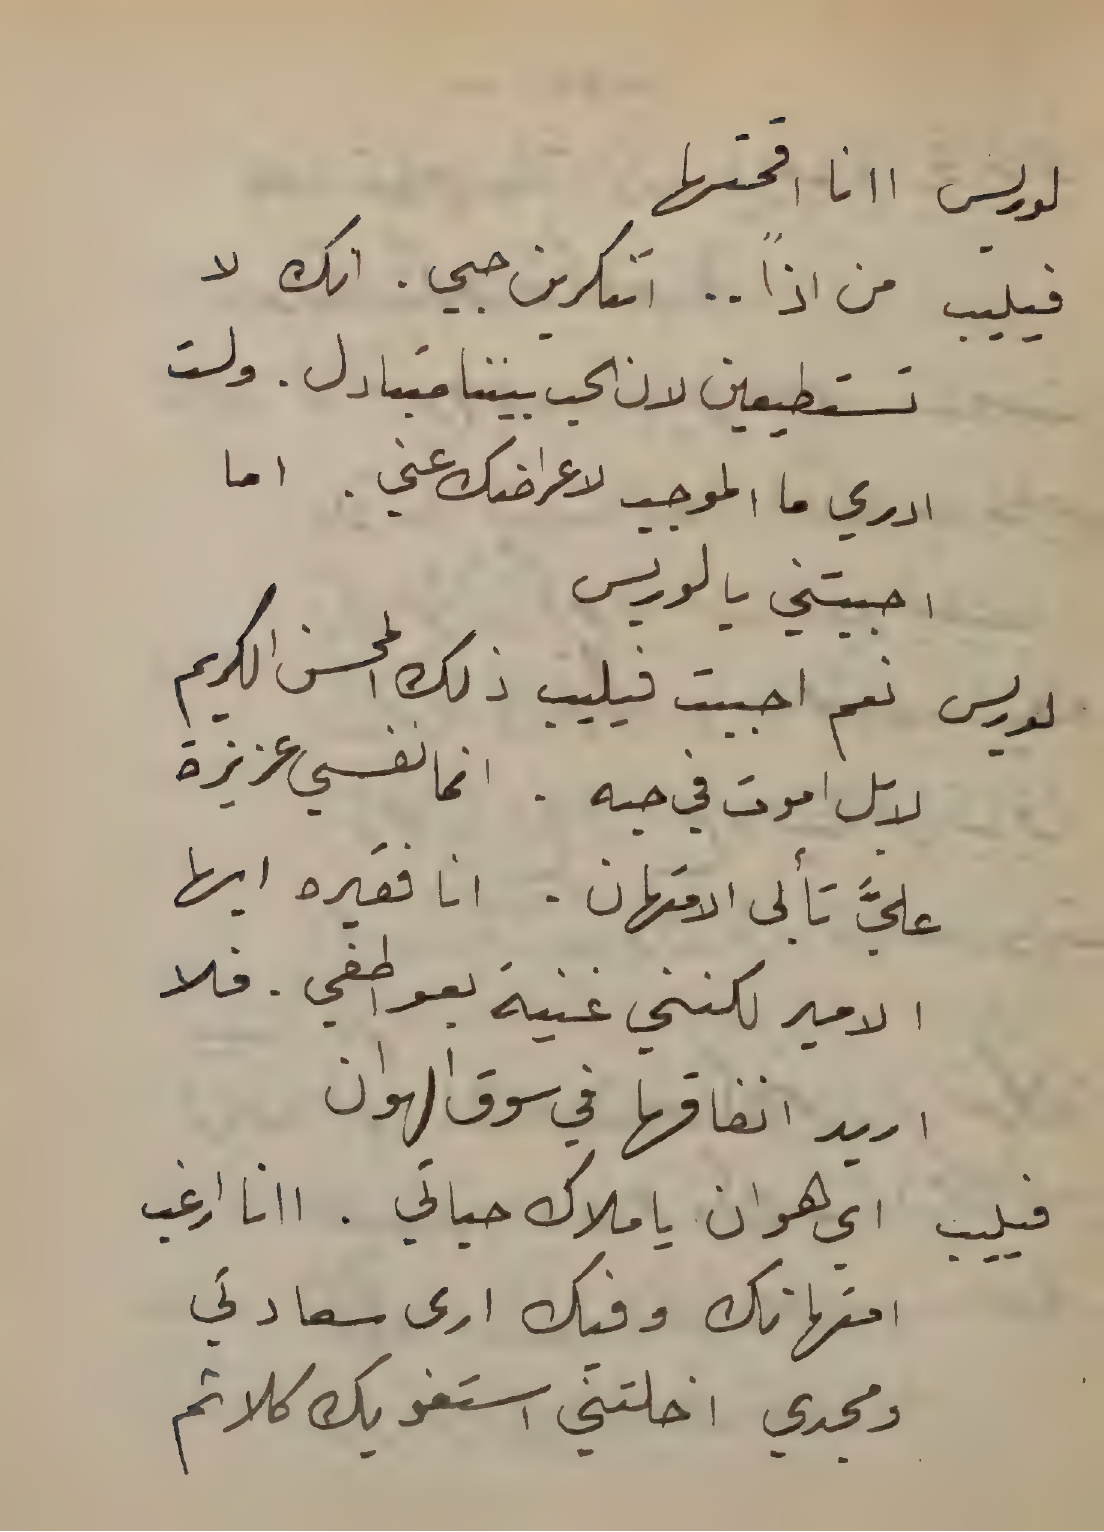 لوريس اانا اقحمتها
فيليب من اذاً .. اتنكرين حبي . انك لا
تستطيعين لان الحب بيننا متبادل . ولست
ادري ما الموجب لاعراضك عني . اما
احببتني يا لوريس
لوريس نعم احببت فيليب ذلك المحسن الكريم
لا بل اموت في حبه . انما نفسي عزيزة
عليَّ تأبى الامتهان . انا فقيره ايها
الامير لكنني غنية بعواطفي . فلا
اريد انفاقها في سوق الهوان
فيليب اي هوان يا ملاك حياتي . اانا ارغب
امتهانك وفيك ارى سعادتي
ومجدي اخلتني استغويك كلا ثم